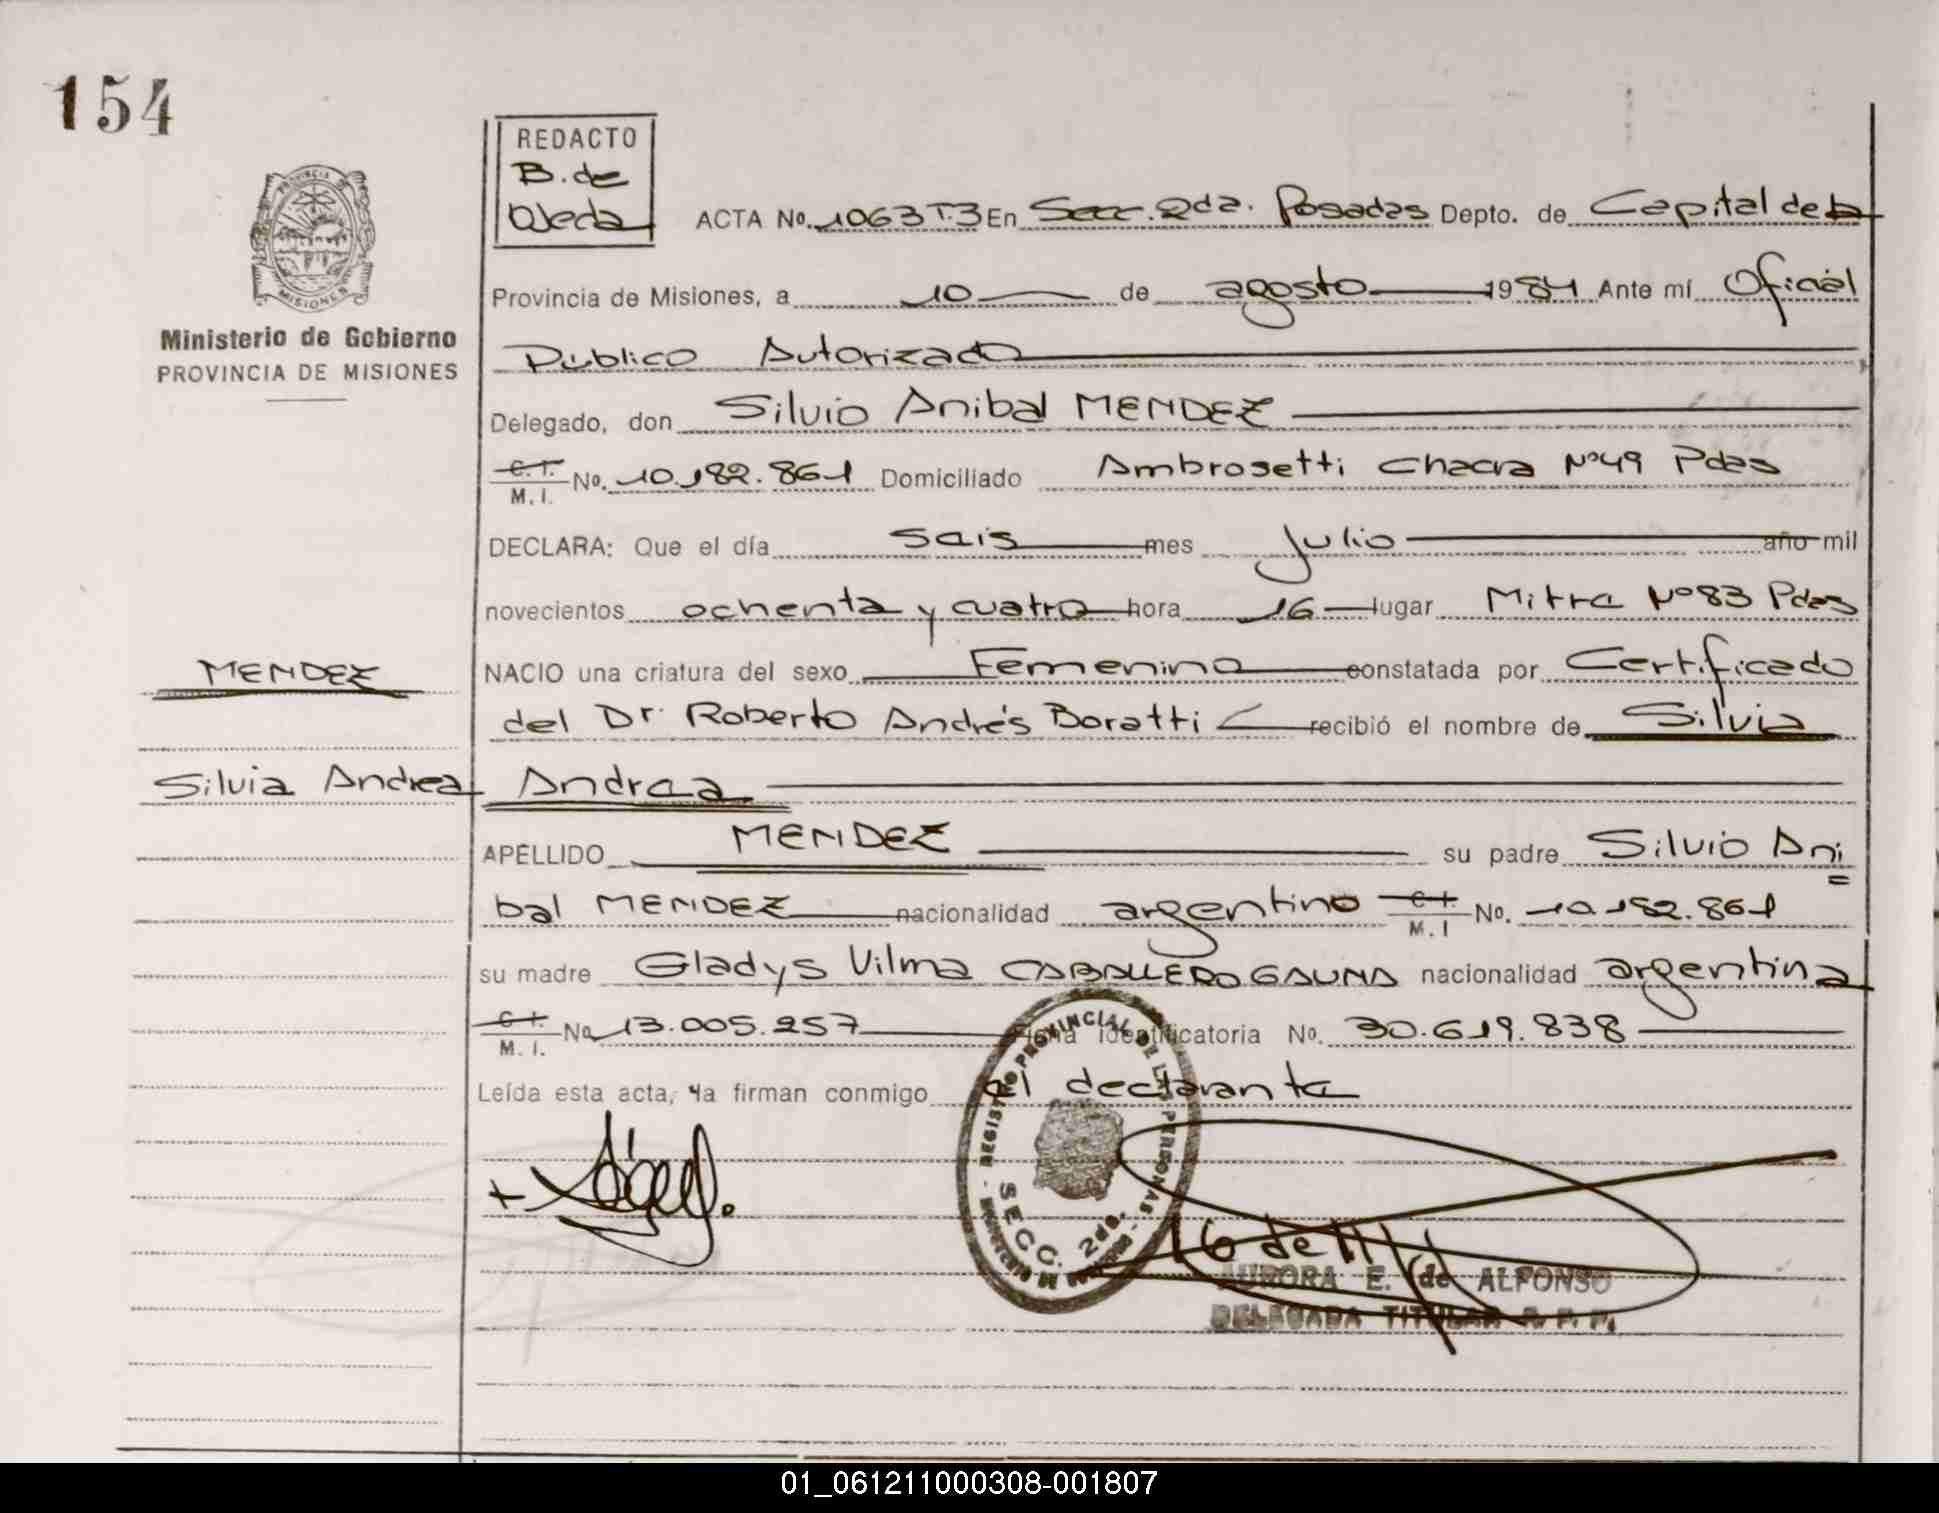 154
REDACTO
B. de
Ojeda
PROVINCIA DE
MISIONES
ACTA No. 1063 T.3 En Secc. 2da. Posadas Depto. de Capital de la
Provincia de Misiones, a 10 de agosto 1984 Ante mí Oficial
Ministerio de Gobierno
PROVINCIA DE MISIONES
Público Autorizado
Delegado, don Silvio Anibal MENDEZ
C.I.
M. I. No. 10.182.861 Domiciliado Ambrosetti Chacra Nº49 Pdas
DECLARA: Que el día seis mes julio año mil
novecientos ochenta y cuatro hora 16 lugar Mitre Nº83 Pdas
MENDEZ
NACIO una criatura del sexo Femenino constatada por Certificado
del Dr. Roberto Andrés Boratti recibió el nombre de Silvia
Silvia Andrea
Andrea
APELLIDO MENDEZ su padre Silvio Ani=
bal MENDEZ nacionalidad argentino C.I.
M. I No. 10.182.861
su madre Gladys Vilma CABALLERO GAUNA nacionalidad argentina
C.I.
M. I. No. 13.005.257 Ficha Identificatoria No. 30.619.838
Leída esta acta, la firman conmigo el declarante
REGISTRO PROVINCIAL DE LAS PERSONAS
SECC. 2da.
AURORA E. de ALFONSO
DELEGADA TITULAR R. P. P.
01_061211000308-001807